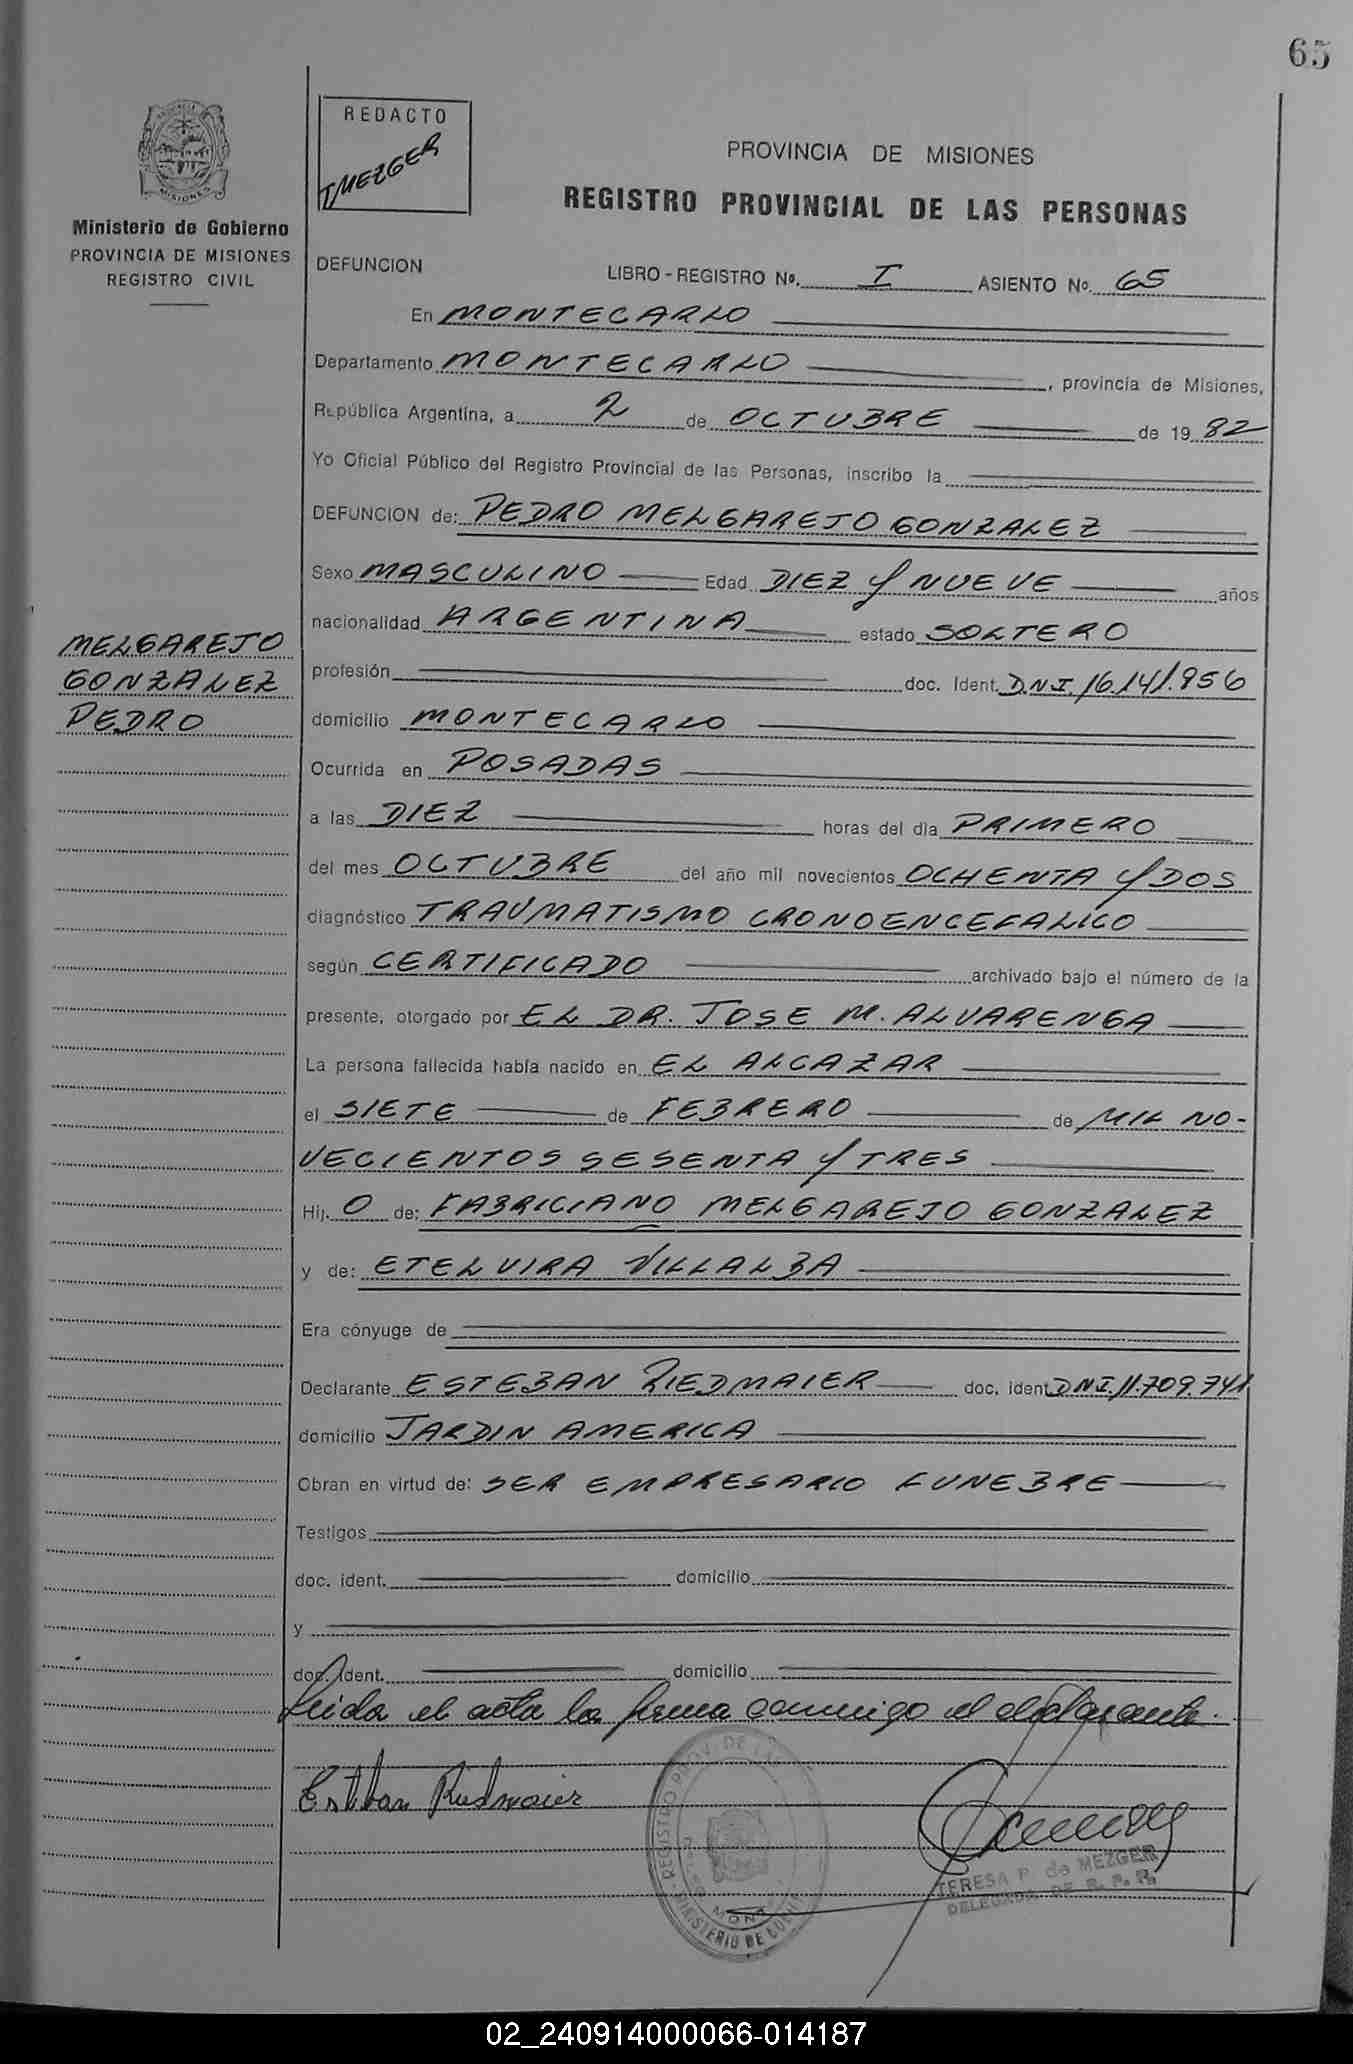 65
REDACTO
TMEZGER
PROVINCIA DE MISIONES
REGISTRO PROVINCIAL DE LAS PERSONAS
MISIONES
Ministerio de Gobierno
PROVINCIA DE MISIONES
REGISTRO CIVIL
DEFUNCION LIBRO - REGISTRO Nº. I ASIENTO Nº. 65
En MONTECARLO
Departamento MONTECARLO, provincia de Misiones,
República Argentina, a 2 de OCTUBRE de 19 82
Yo Oficial Público del Registro Provincial de las Personas, inscribo la
DEFUNCION de: PEDRO MELGAREJO GONZALEZ
Sexo MASCULINO Edad DIEZ Y NUEVE años
nacionalidad ARGENTINA estado SOLTERO
MELGAREJO
GONZALEZ
PEDRO
profesión doc. Ident. D.N.I. 16.141.956
domicilio MONTECARLO
Ocurrida en POSADAS
a las DIEZ horas del día PRIMERO
del mes OCTUBRE del año mil novecientos OCHENTA Y DOS
diagnóstico TRAUMATISMO CRONOENCEFALICO
según CERTIFICADO archivado bajo el número de la
presente, otorgado por EL DR. JOSE M. ALVARENGA
La persona fallecida había nacido en EL ALCAZAR
el SIETE de FEBRERO de MIL NO-
VECIENTOS SESENTA Y TRES
Hij. O de: FABRICIANO MELGAREJO GONZALEZ
y de: ETELVIRA VILLALBA
Era cónyuge de
Declarante ESTEBAN RIEDMAIER doc. ident. DNI. 11.709.741
domicilio JARDIN AMERICA
Obran en virtud de: SER EMPRESARIO FUNEBRE
Testigos
doc. ident. domicilio
y
doc. ident. domicilio
Leida el acta la firma conmigo el declarante.
Esteban Riedmaier
REGISTRO PROV. DE LAS
MINISTERIO DE
TERESA P. de MEZGER
DELEGADA DE R. P. P.
02_240914000066-014187